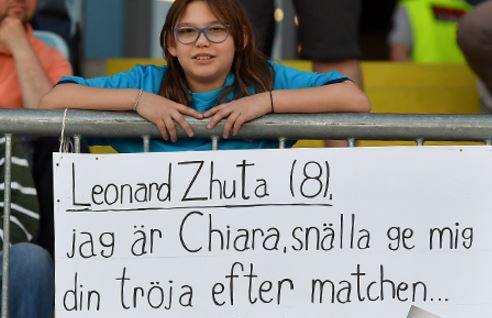 Leonard Zhuta (8),
jag är Chiara, snälla ge mig
din tröja efter matchen...